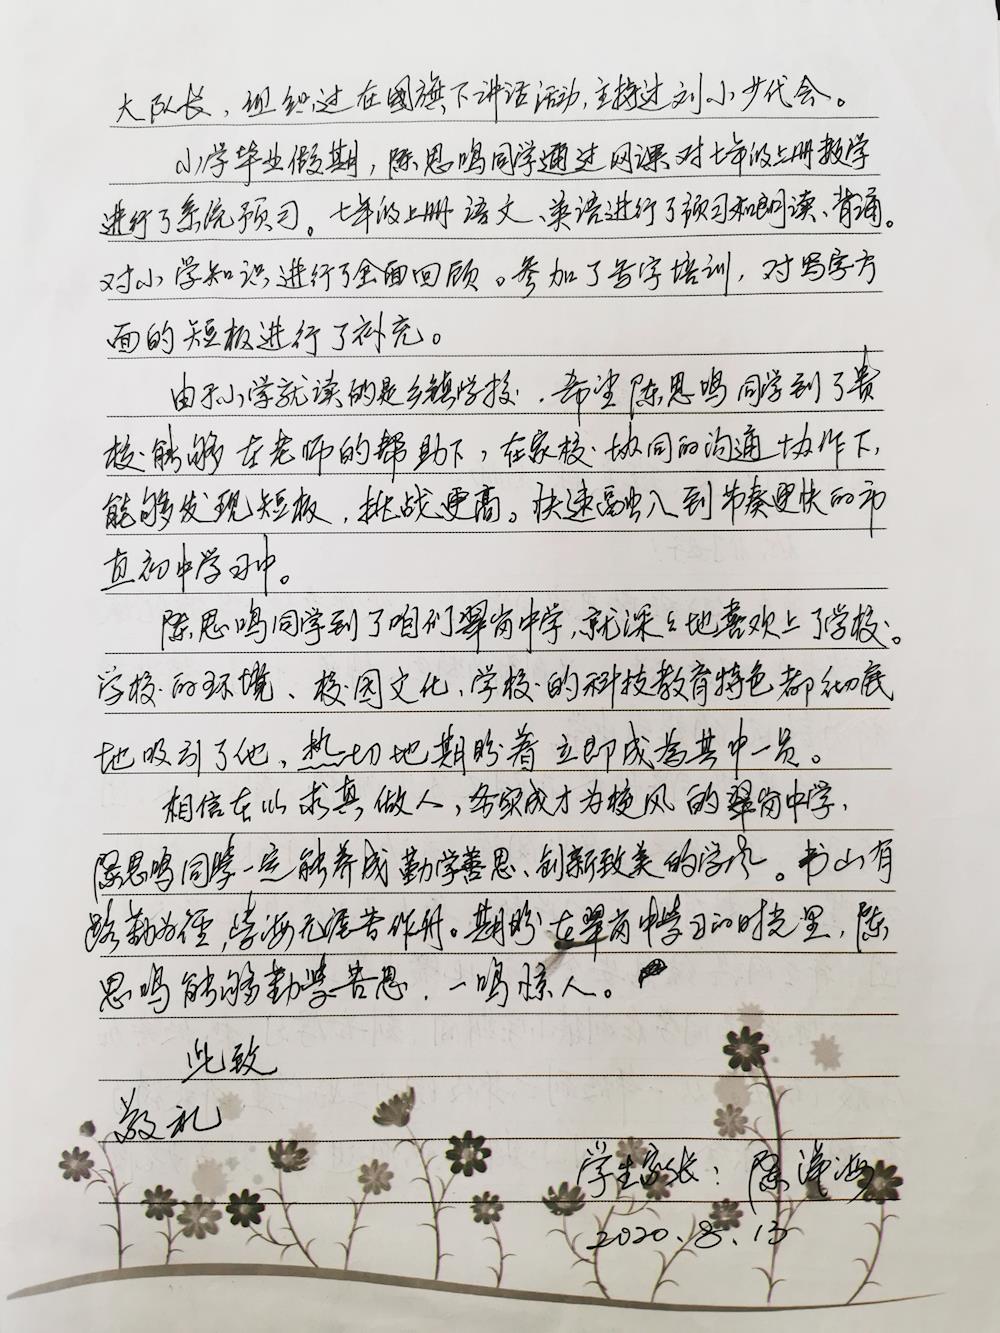 大队长，组织过在国旗下讲话活动，主持过刘小少代会。
小学毕业假期，陈思鸣同学通过网课对七年级上册数学
进行了系统预习。七年级上册语文、英语进行了预习和朗读、背诵。
对小学知识进行了全面回顾。参加了写字培训，对写字方
面的短板进行了补充。
由于小学就读的是乡镇学校，希望陈思鸣同学到了贵
校能够在老师的帮助下，在家校协同的沟通协作下，
能够发现短板，挑战更高。快速融入到节奏更快的市
直初中学习中。
陈思鸣同学到了咱们翠岗中学，就深深地喜欢上了学校。
学校的环境、校园文化、学校的科技教育特色都彻底
地吸引了他，热切地期盼着立即成为其中一员。
相信在以求真做人，务实成才为校风的翠岗中学，
陈思鸣同学一定能养成勤学善思、创新致美的学风。书山有
路勤为径，学海无涯苦作舟。期盼在翠岗中学学习的时光里，陈
思鸣能够勤学善思，一鸣惊人。
此致
敬礼
学生家长：陈海
2020.8.13